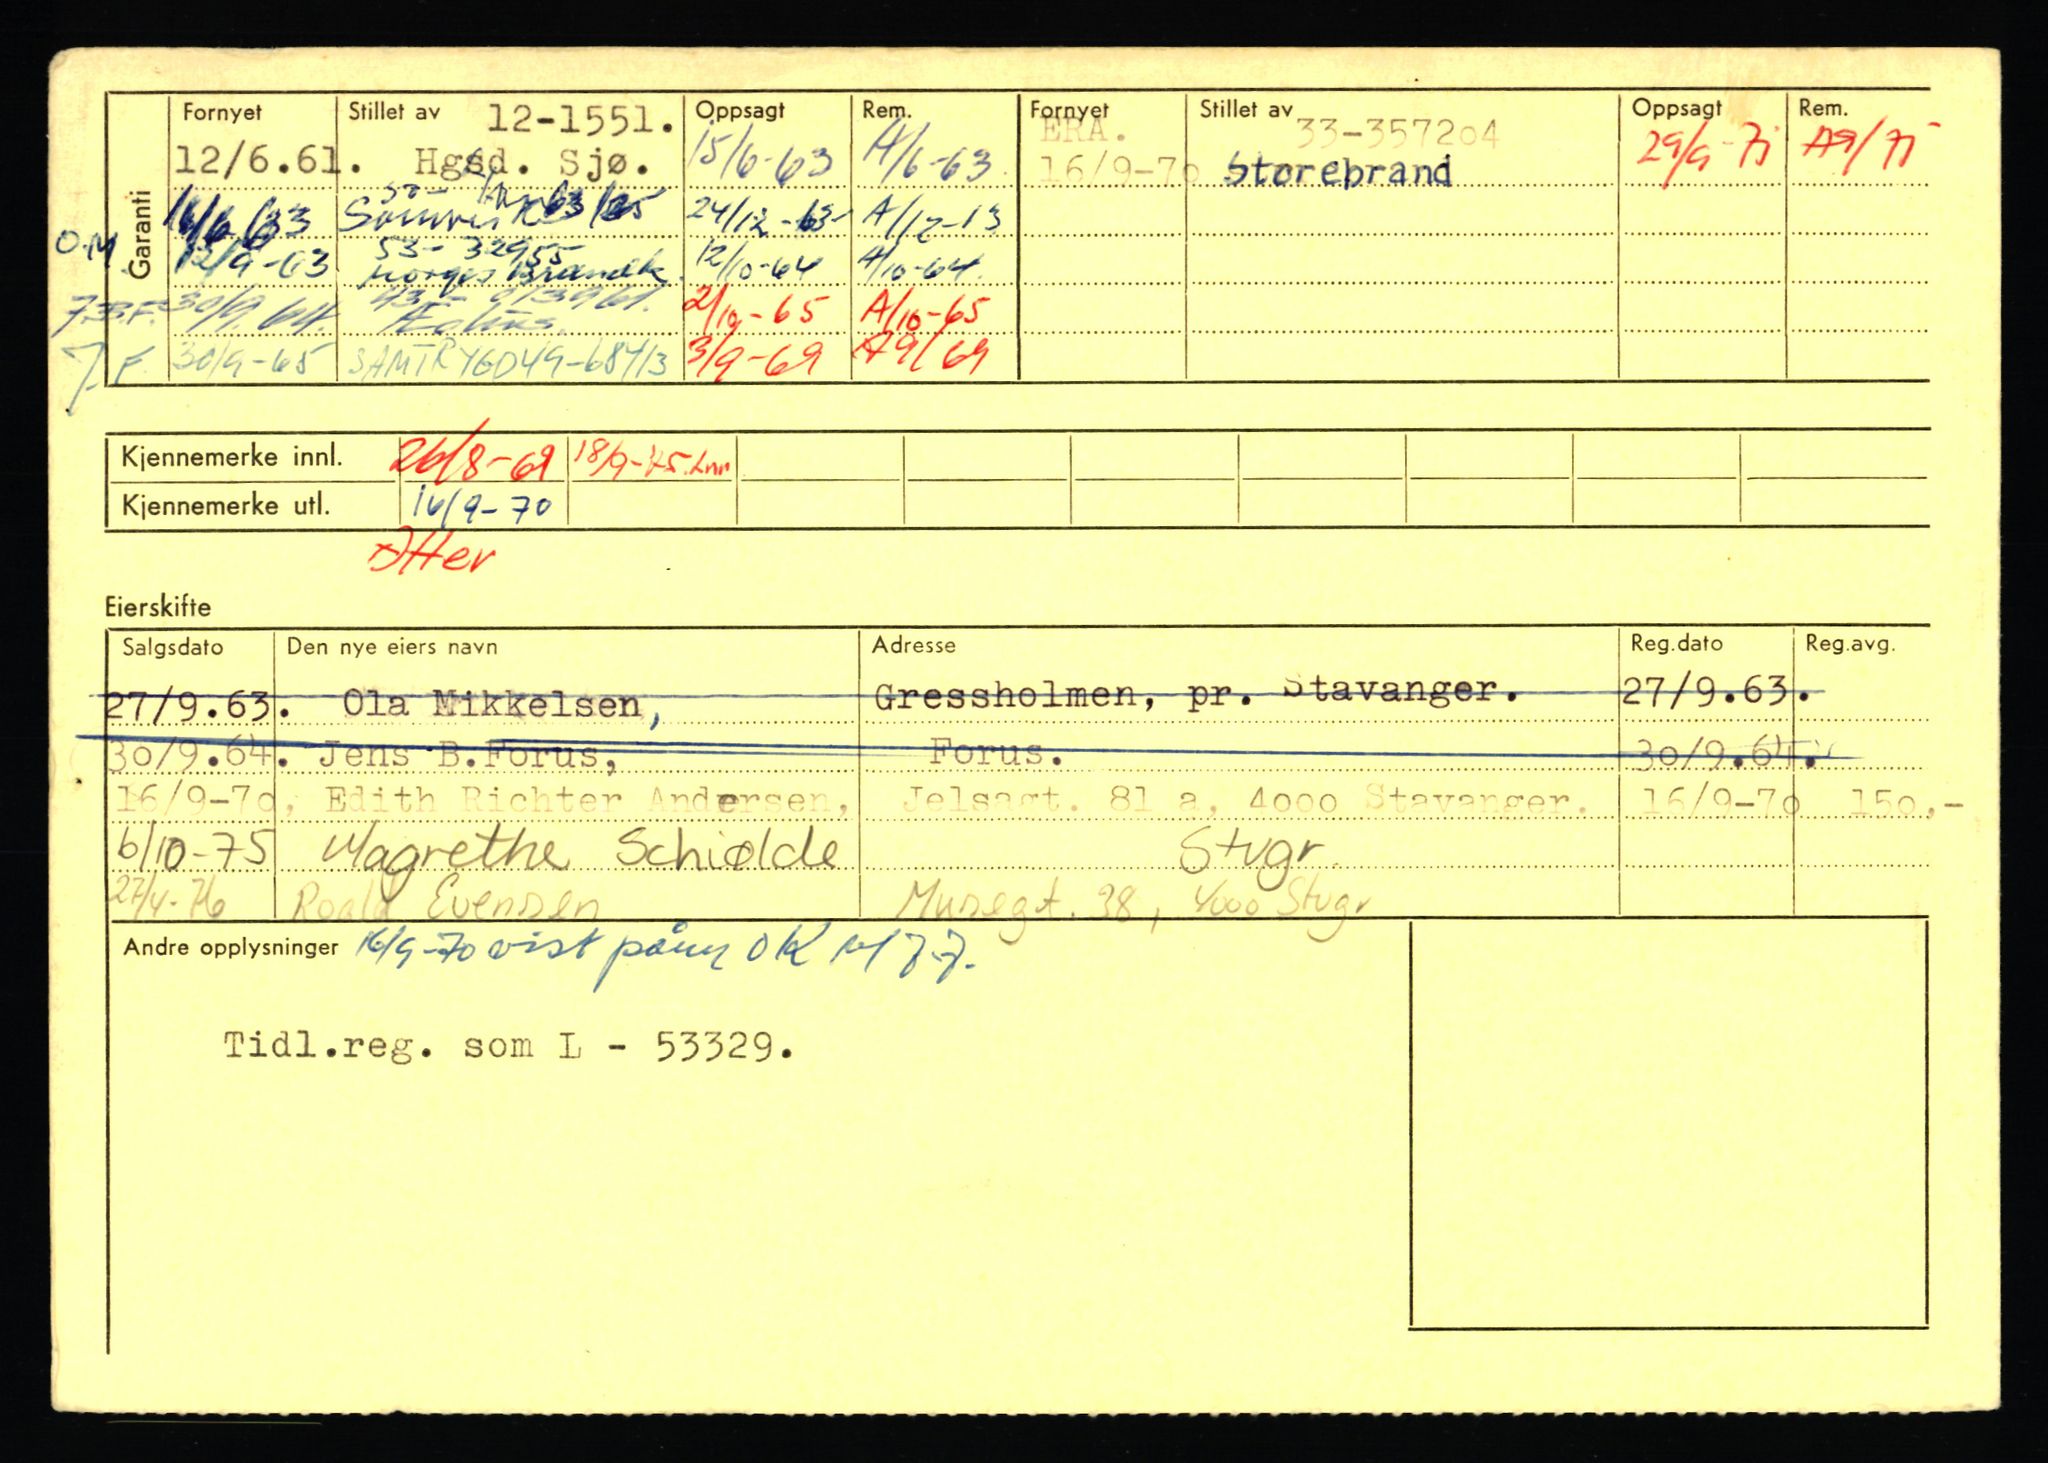 Garanti
Fornyet Stillet av Oppsagt Rem. Fornyet Stillet av Oppsagt Rem.
12-1551. ERA. 33-357204
12/6.61. Hgsd. Sjø. 15/6-63 A/6-63 16/9-70 Storebrand 29/9-71 A9/71
24/12-63
O.M 12/9-63 53-32955 12/10-64 A/10-64.
Norges Brannk
30/9.64. 2/10-65 A/10-65
30/9-65 SAMTRYGD 49-68413 3/9-69 A9/69
Kjennemerke innl. 26/8-69 18/9-75.
Kjennemerke utl. 16/9-70
Etter
Eierskifte
Salgsdato Den nye eiers navn Adresse Reg.dato Reg.avg.
27/9.63. Ola Mikkelsen, Gressholmen, pr. Stavanger. 27/9.63.
30/9.64. Jens B.Forus, Forus. 30/9.64.
16/9-70, Edith Richter Andersen, Jelsagt. 81 a, 4000 Stavanger. 16/9-70 150,-
6/10-75 Magrethe Schiølde Stvgr
27/4-76 Roald Evensen Musegt. 38, 4000 Stvgr
Andre opplysninger 16/9-70 vist på ny OK
Tidl.reg. som L - 53329.